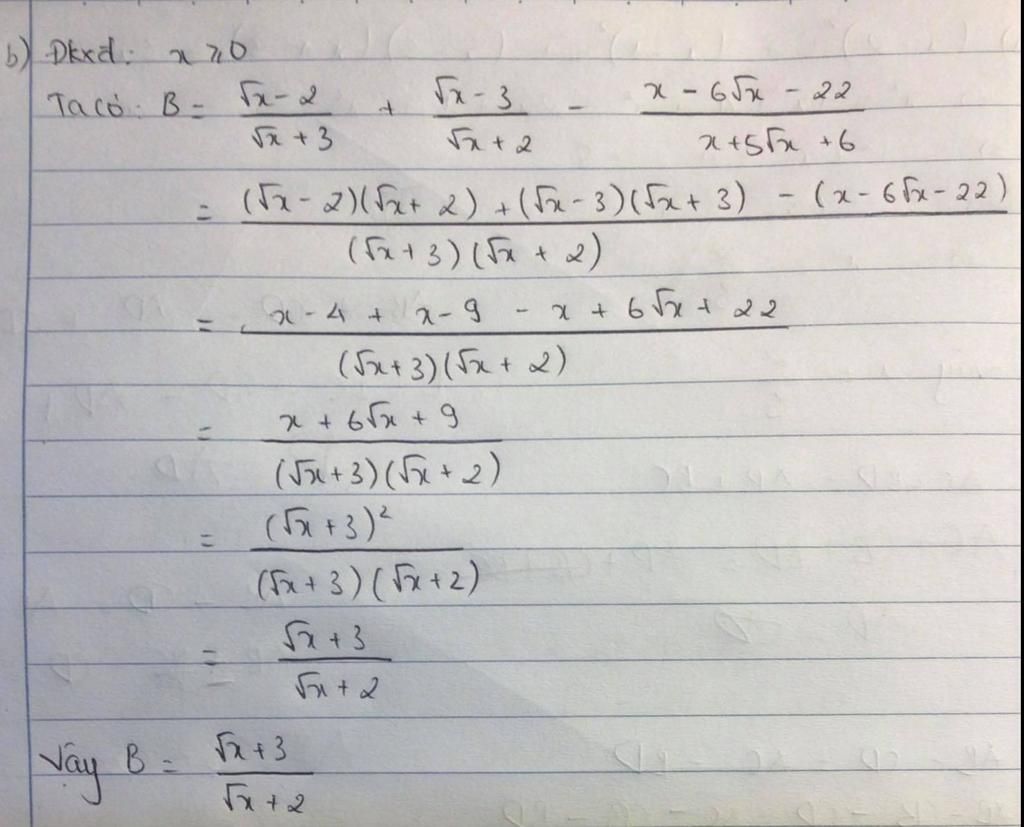 b) Đkxđ: x ⩾ 0
Ta có: B = (√x - 2)/(√x + 3) + (√x - 3)/(√x + 2) - (x - 6√x - 22)/(x + 5√x + 6)
= ((√x - 2)(√x + 2) + (√x - 3)(√x + 3) - (x - 6√x - 22))/((√x + 3)(√x + 2))
= (x - 4 + x - 9 - x + 6√x + 22)/((√x + 3)(√x + 2))
= (x + 6√x + 9)/((√x + 3)(√x + 2))
= (√x + 3)²/((√x + 3)(√x + 2))
= (√x + 3)/(√x + 2)
Vậy B = (√x + 3)/(√x + 2)